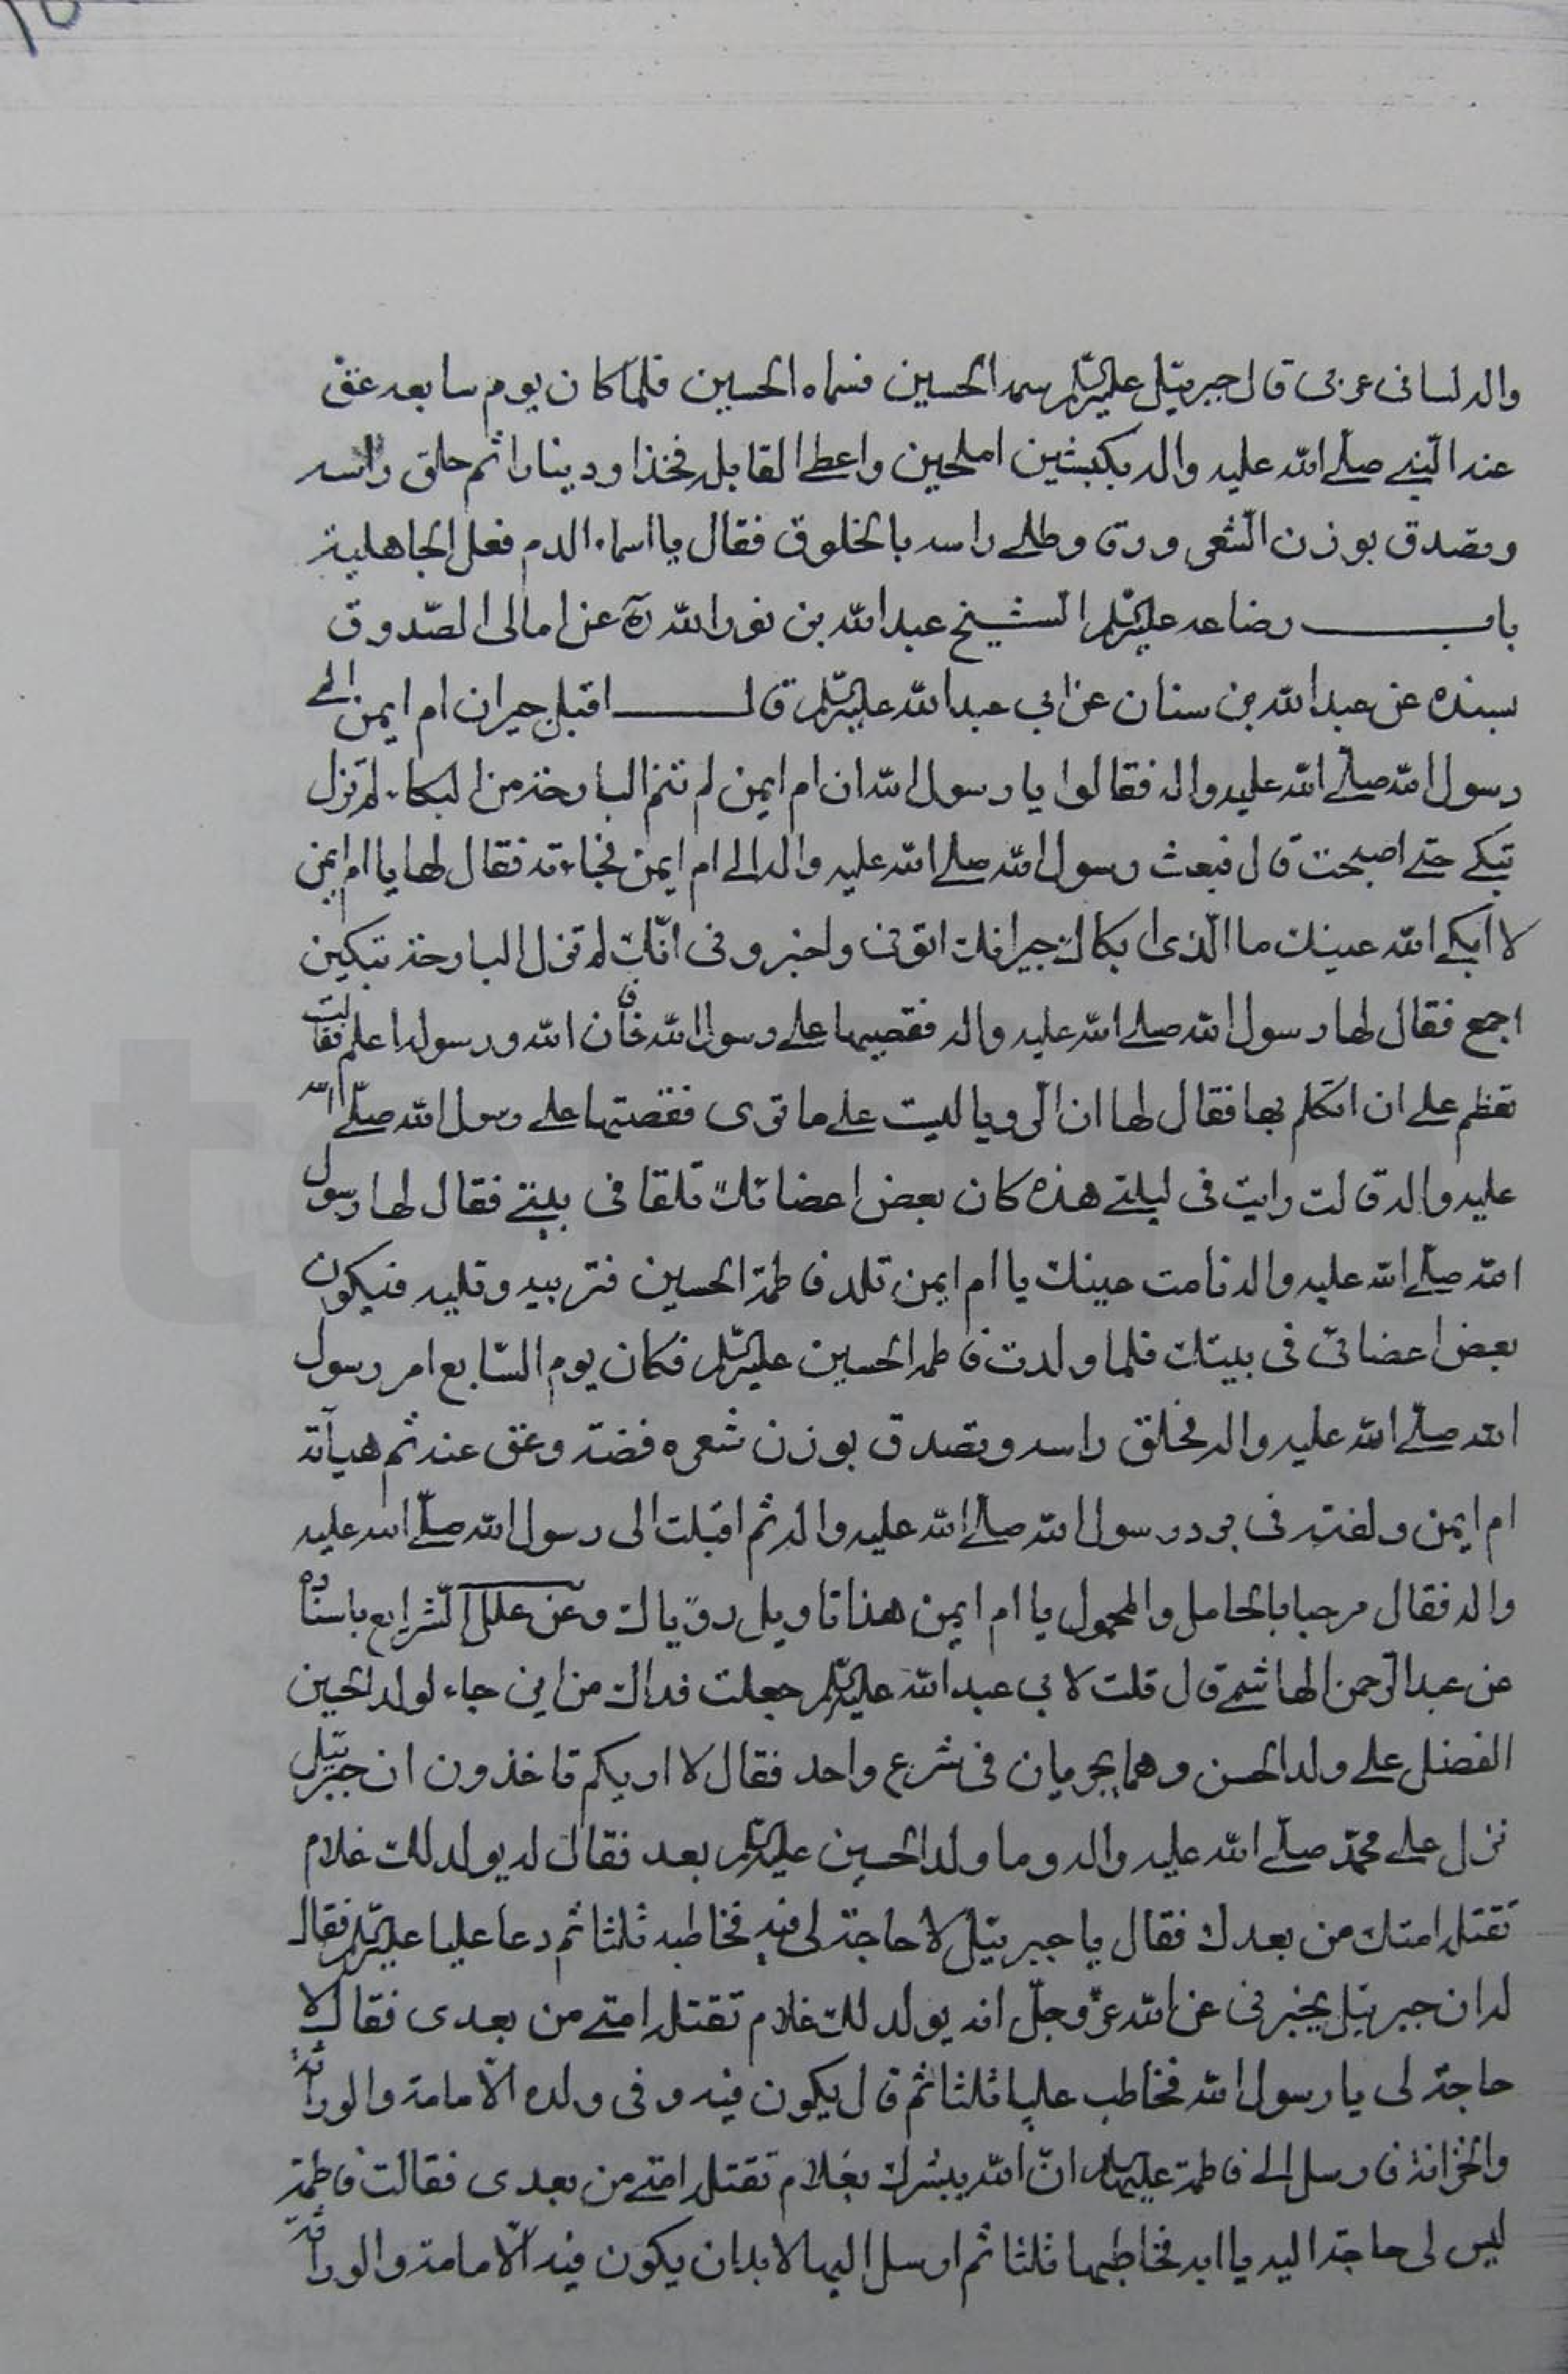 واله لسانى عربى قال جبرئيل عليه السلم سمه الحسين فسماه الحسين فلما كان يوم سابعه عق
عنه النبي صلى الله عليه واله بكبشين املحين واعطى القابله فخذا ودينارا ثم حلق راسه
وتصدق بوزن الشعر ورق وطلى راسه بالخلوق فقال يا اسماء الدم فعل الجاهلية
باب رضاعه عليه السلم الشيخ عبدالله بن نورالله ره عن امالى الصدوق
بسنده عن عبدالله بن سنان عن ابي عبدالله عليه السلم قال اقبل جيران ام ايمن الى
رسول الله صلى الله عليه واله فقالوا يا رسول الله ان ام ايمن لم تنم البارحة من البكاء لم تزل
تبكي حتى اصبحت قال فبعث رسول الله صلى الله عليه واله الى ام ايمن فجاءته فقال لها يا ام ايمن
لا ابكى الله عينك ما الذى ابكاك جيرانك اتونى واخبرونى انك لم تزل البارحة تبكين
اجمع فقال لها رسول الله صلى الله عليه واله فقصيها على رسول الله فان الله ورسوله اعلم فقالت
تعظم على ان اتكلم بها فقال لها ان الرويا ليست على ما ترى فقصتها على رسول الله صلى الله
عليه واله قالت رايت فى ليلتى هذه كان بعض اعضائك تلقا فى بيتى فقال لها رسول
الله صلى الله عليه واله نامت عينك يا ام ايمن تلد فاطمة الحسين فتربيه وتلبيه فيكون
بعض اعضائى فى بيتك فلما ولدت فاطمه الحسين عليه السلم فكان يوم السابع امر رسول
الله صلى الله عليه واله فحلق راسه وتصدق بوزن شعره فضة وعق عنه ثم هيأته
ام ايمن ولفته فى برد رسول الله صلى الله عليه واله ثم اقبلت الى رسول الله صلى الله عليه
واله فقال مرحبا بالحامل والمحمول يا ام ايمن هذا تاويل روياك وعن علل الشرايع باسناده
عن عبدالرحمن الهاشمى قال قلت لابي عبدالله عليه السلم جعلت فداك من اين جاء لولد الحسين
الفضل على ولد الحسن وهما يجريان فى شرع واحد فقال لا اريكم تاخذون ان جبرئيل
نزل على محمد صلى الله عليه واله وما ولد الحسين عليه السلم بعد فقال له يولد لك غلام
تقتله امتك من بعدك فقال يا جبرئيل لا حاجة لى فيه فخاطبه ثلثا ثم دعا عليا عليه السلم فقال
له ان جبرئيل يخبرنى عن الله عز وجل انه يولد لك غلام تقتله امتى من بعدى فقال لا
حاجة لى يا رسول الله فخاطب عليا ثلثا ثم قال يكون فيه وفى ولده الامامة والوراثة
والخزانة فارسل الى فاطمة عليها السلم ان الله يبشرك بغلام تقتله امتى من بعدى فقالت فاطمة
ليس لى حاجة اليه يا ابه فخاطبها ثلثا ثم ارسل اليها لا بد ان يكون فيه الامامة والوراثة